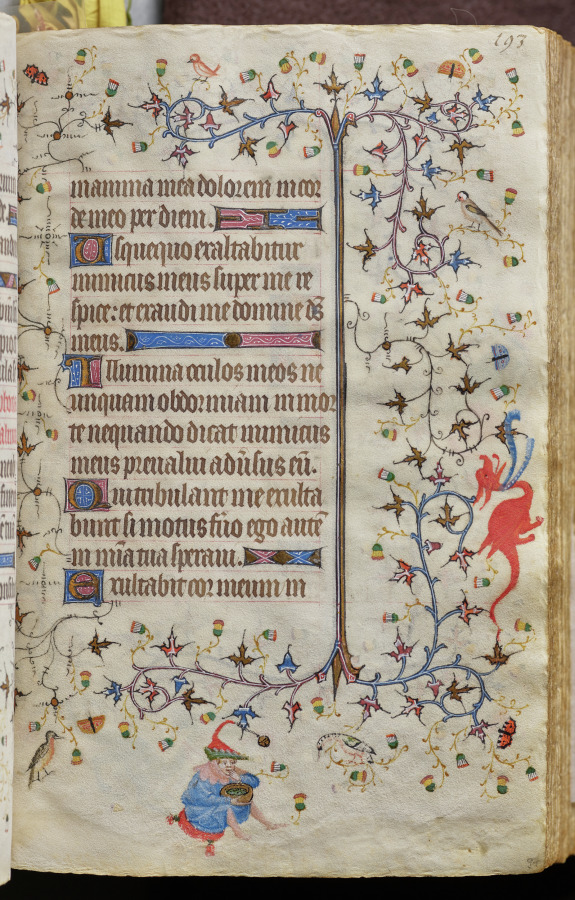 193
mamma mea dolorem in cor
de meo per diem.
Usquequo exaltabitur
inimicus meus super me re
spice: et exaudi me domine ds̄
meus.
Illumina oculos meos ne
unquam obdormiam in mor
te nequando dicat inimicus
meus preualui aduersus eū.
Qui tribulant me exulta
bunt si motus fuero ego autē
in mīa tua speraui.
Exultabit cor meum in